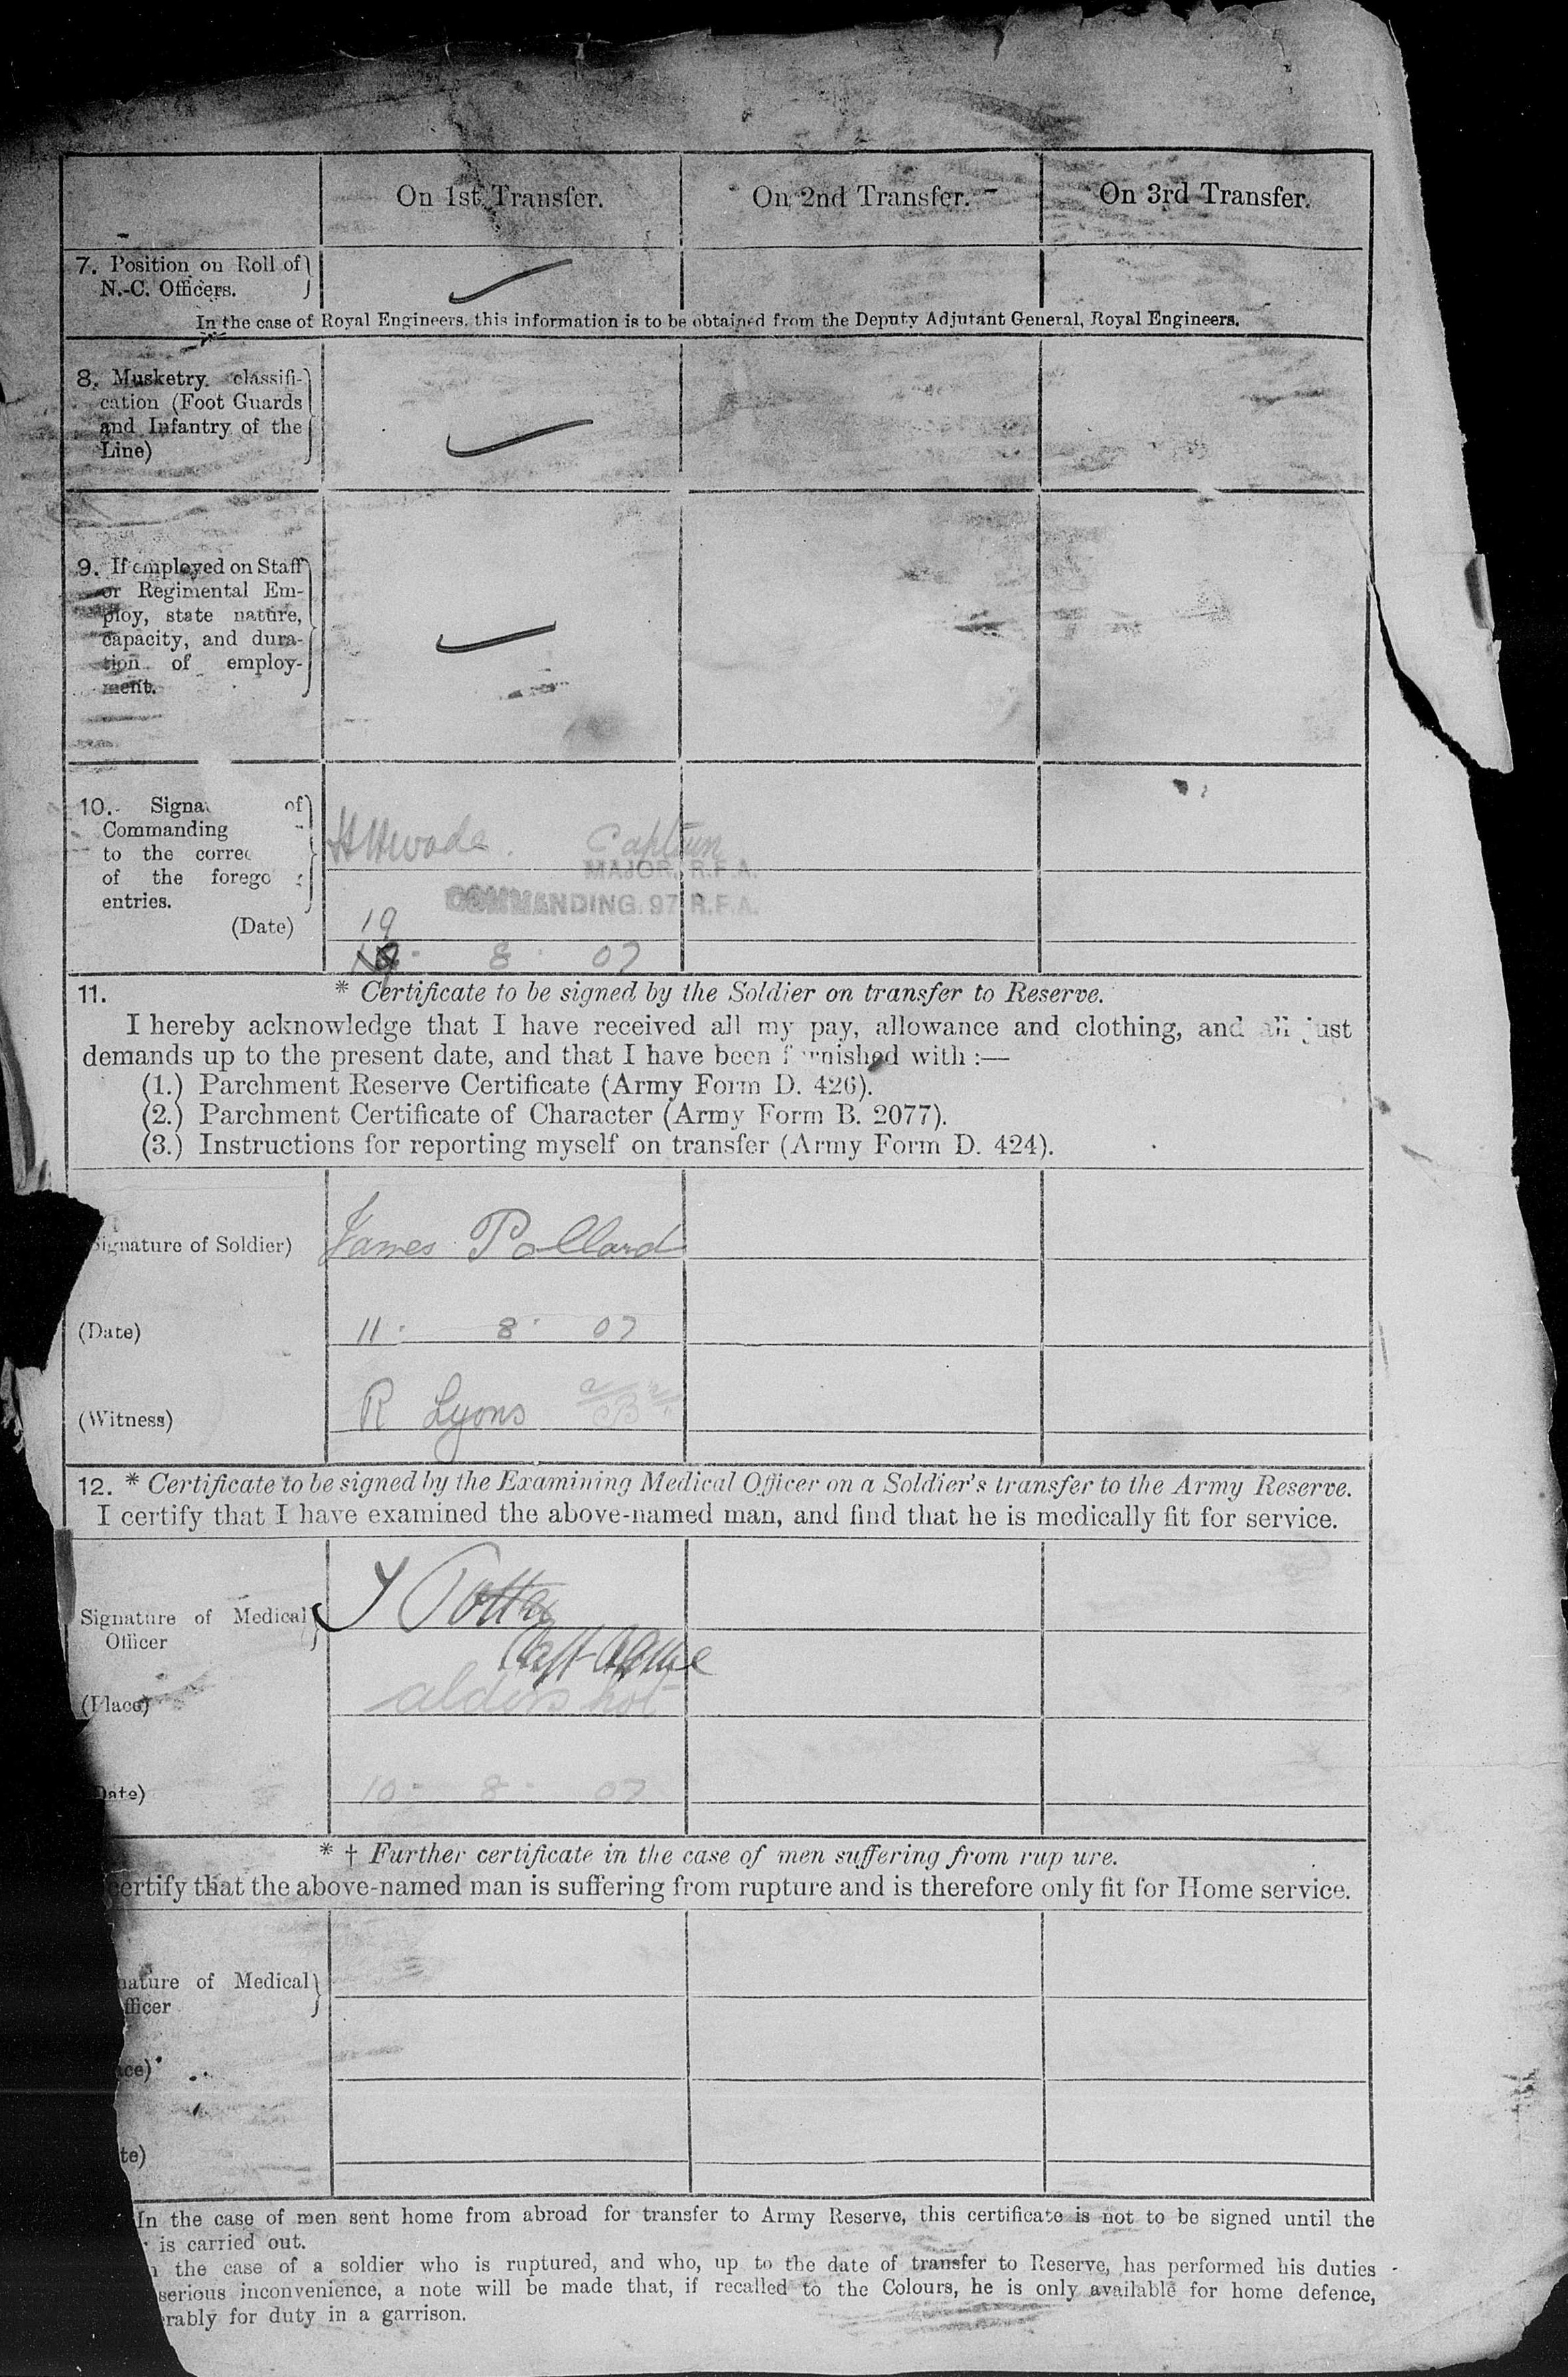 On 1st Transfer. On 2nd Transfer. On 3rd Transfer.
7. Position on Roll of
N.-C. Officers.
In the case of Royal Engineers, this information is to be obtained from the Deputy Adjutant General, Royal Engineers.
8. Musketry classifi-
cation (Foot Guards
and Infantry of the
Line)
9. If employed on Staff
or Regimental Em-
ploy, state nature,
capacity, and dura-
tion of employ-
ment.
10. Signa of
Commanding
to the correc
of the forego
entries.
Captain
MAJOR, R.F.A.
COMMANDING 97 R.F.A.
(Date) 19
8 07
11. * Certificate to be signed by the Soldier on transfer to Reserve.
I hereby acknowledge that I have received all my pay, allowance and clothing, and all just
demands up to the present date, and that I have been furnished with :—
(1.) Parchment Reserve Certificate (Army Form D. 426).
(2.) Parchment Certificate of Character (Army Form B. 2077).
(3.) Instructions for reporting myself on transfer (Army Form D. 424).
ignature of Soldier) James Pollard
(Date) 11 . 8 . 07
(Witness) R Lyons
12. * Certificate to be signed by the Examining Medical Officer on a Soldier's transfer to the Army Reserve.
I certify that I have examined the above-named man, and find that he is medically fit for service.
Signature of Medical
Officer
Potter
Capt
(Place) aldershot
Date) 10 - 8 - 07
* † Further certificate in the case of men suffering from rup ure.
certify that the above-named man is suffering from rupture and is therefore only fit for Home service.
nature of Medical
fficer
ce)
te)
In the case of men sent home from abroad for transfer to Army Reserve, this certificate is not to be signed until the
is carried out.
the case of a soldier who is ruptured, and who, up to the date of transfer to Reserve, has performed his duties
serious inconvenience, a note will be made that, if recalled to the Colours, he is only available for home defence,
rably for duty in a garrison.